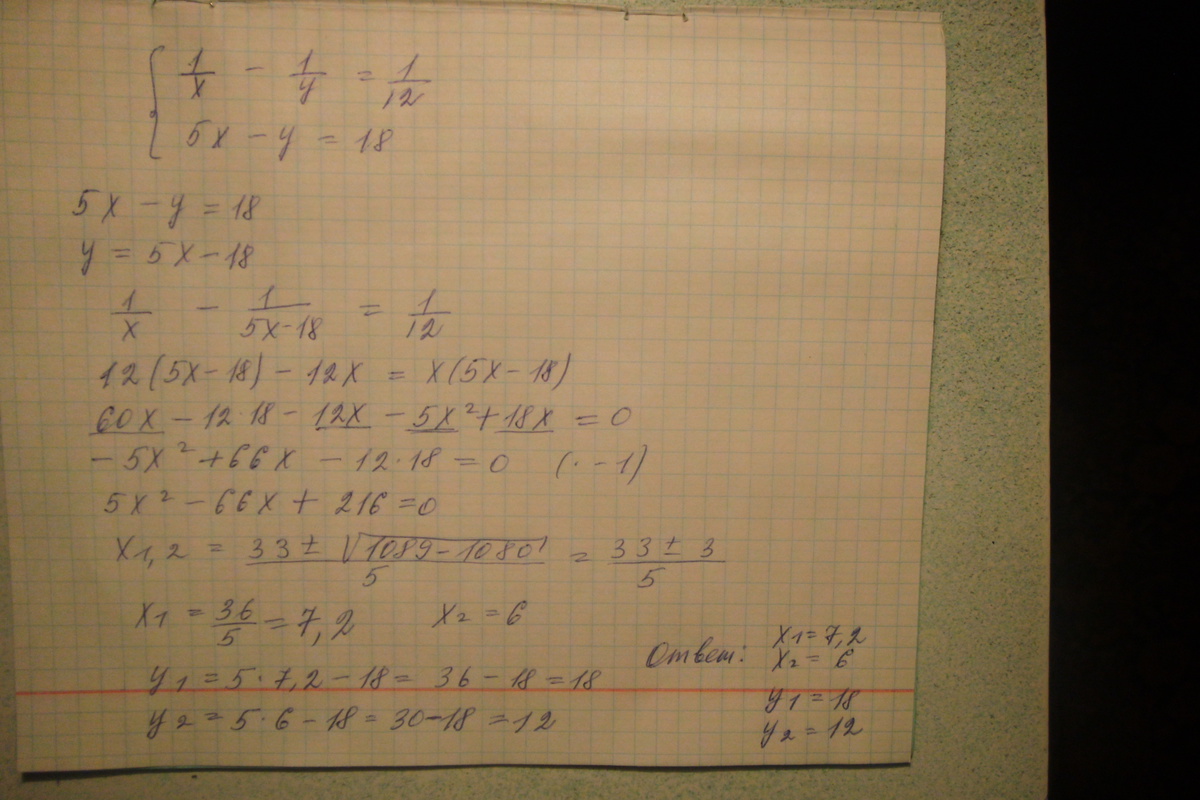 { 1/x - 1/y = 1/12
5x - y = 18
5x - y = 18
y = 5x - 18
1/x - 1/(5x-18) = 1/12
12(5x-18) - 12x = x(5x-18)
60x - 12·18 - 12x - 5x² + 18x = 0
-5x² + 66x - 12·18 = 0 (· -1)
5x² - 66x + 216 = 0
x1,2 = (33 ± √(1089-1080))/5 = (33 ± 3)/5
x1 = 36/5 = 7,2 x2 = 6
y1 = 5·7,2 - 18 = 36 - 18 = 18
y2 = 5·6 - 18 = 30 - 18 = 12
Ответ: x1 = 7,2
x2 = 6
y1 = 18
y2 = 12